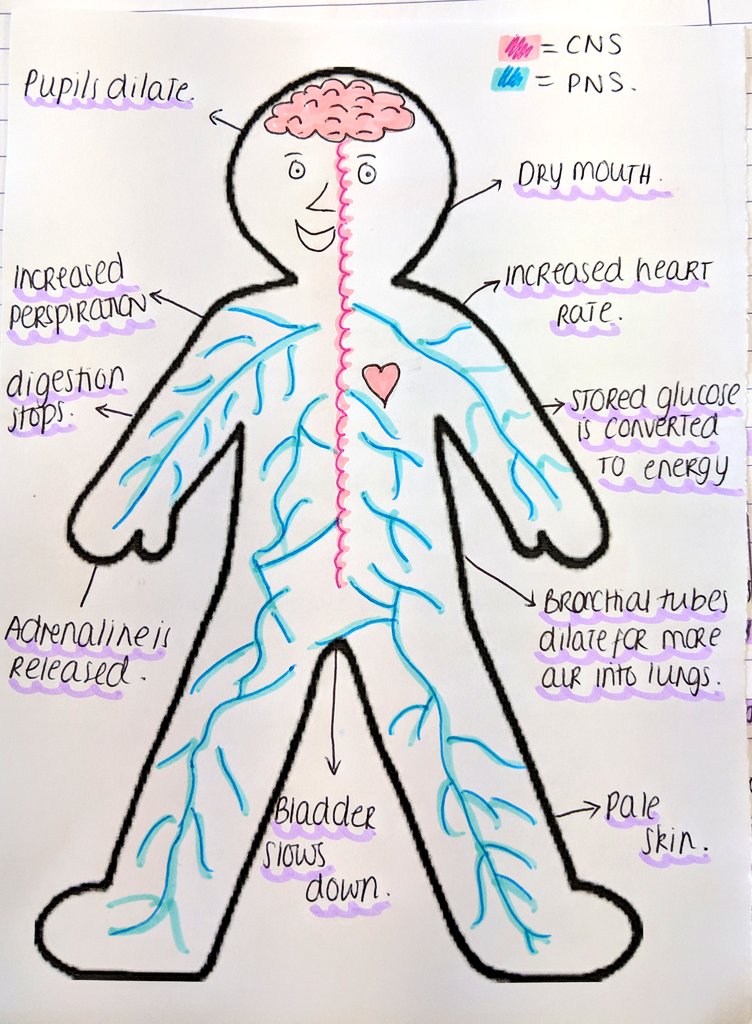 = CNS
= PNS.
Pupils dilate.
DRY MOUTH.
INCREASED
PERSPIRATION
INCREASED HEART
RATE.
digestion
stops.
STORED glucose
is CONVERTED
TO energy
Adrenaline is
Released.
BRONCHIAL tubes
dilate for more
air into lungs.
Bladder
slows
down.
Pale
skin.